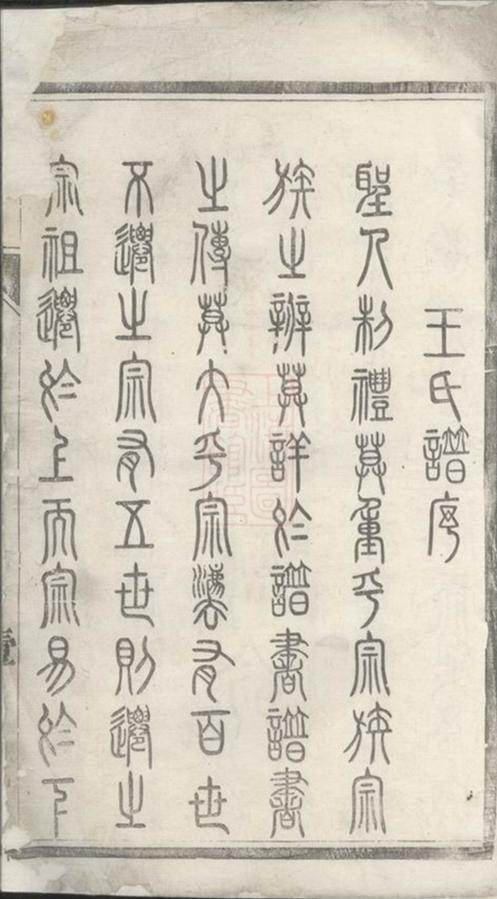 王氏譜序
聖人制禮莫重乎宗族宗
族之辨莫詳於譜書譜書
之傳莫大乎宗灋有百世
不遷之宗有五世則遷之
宗祖遷於上而宗易於下